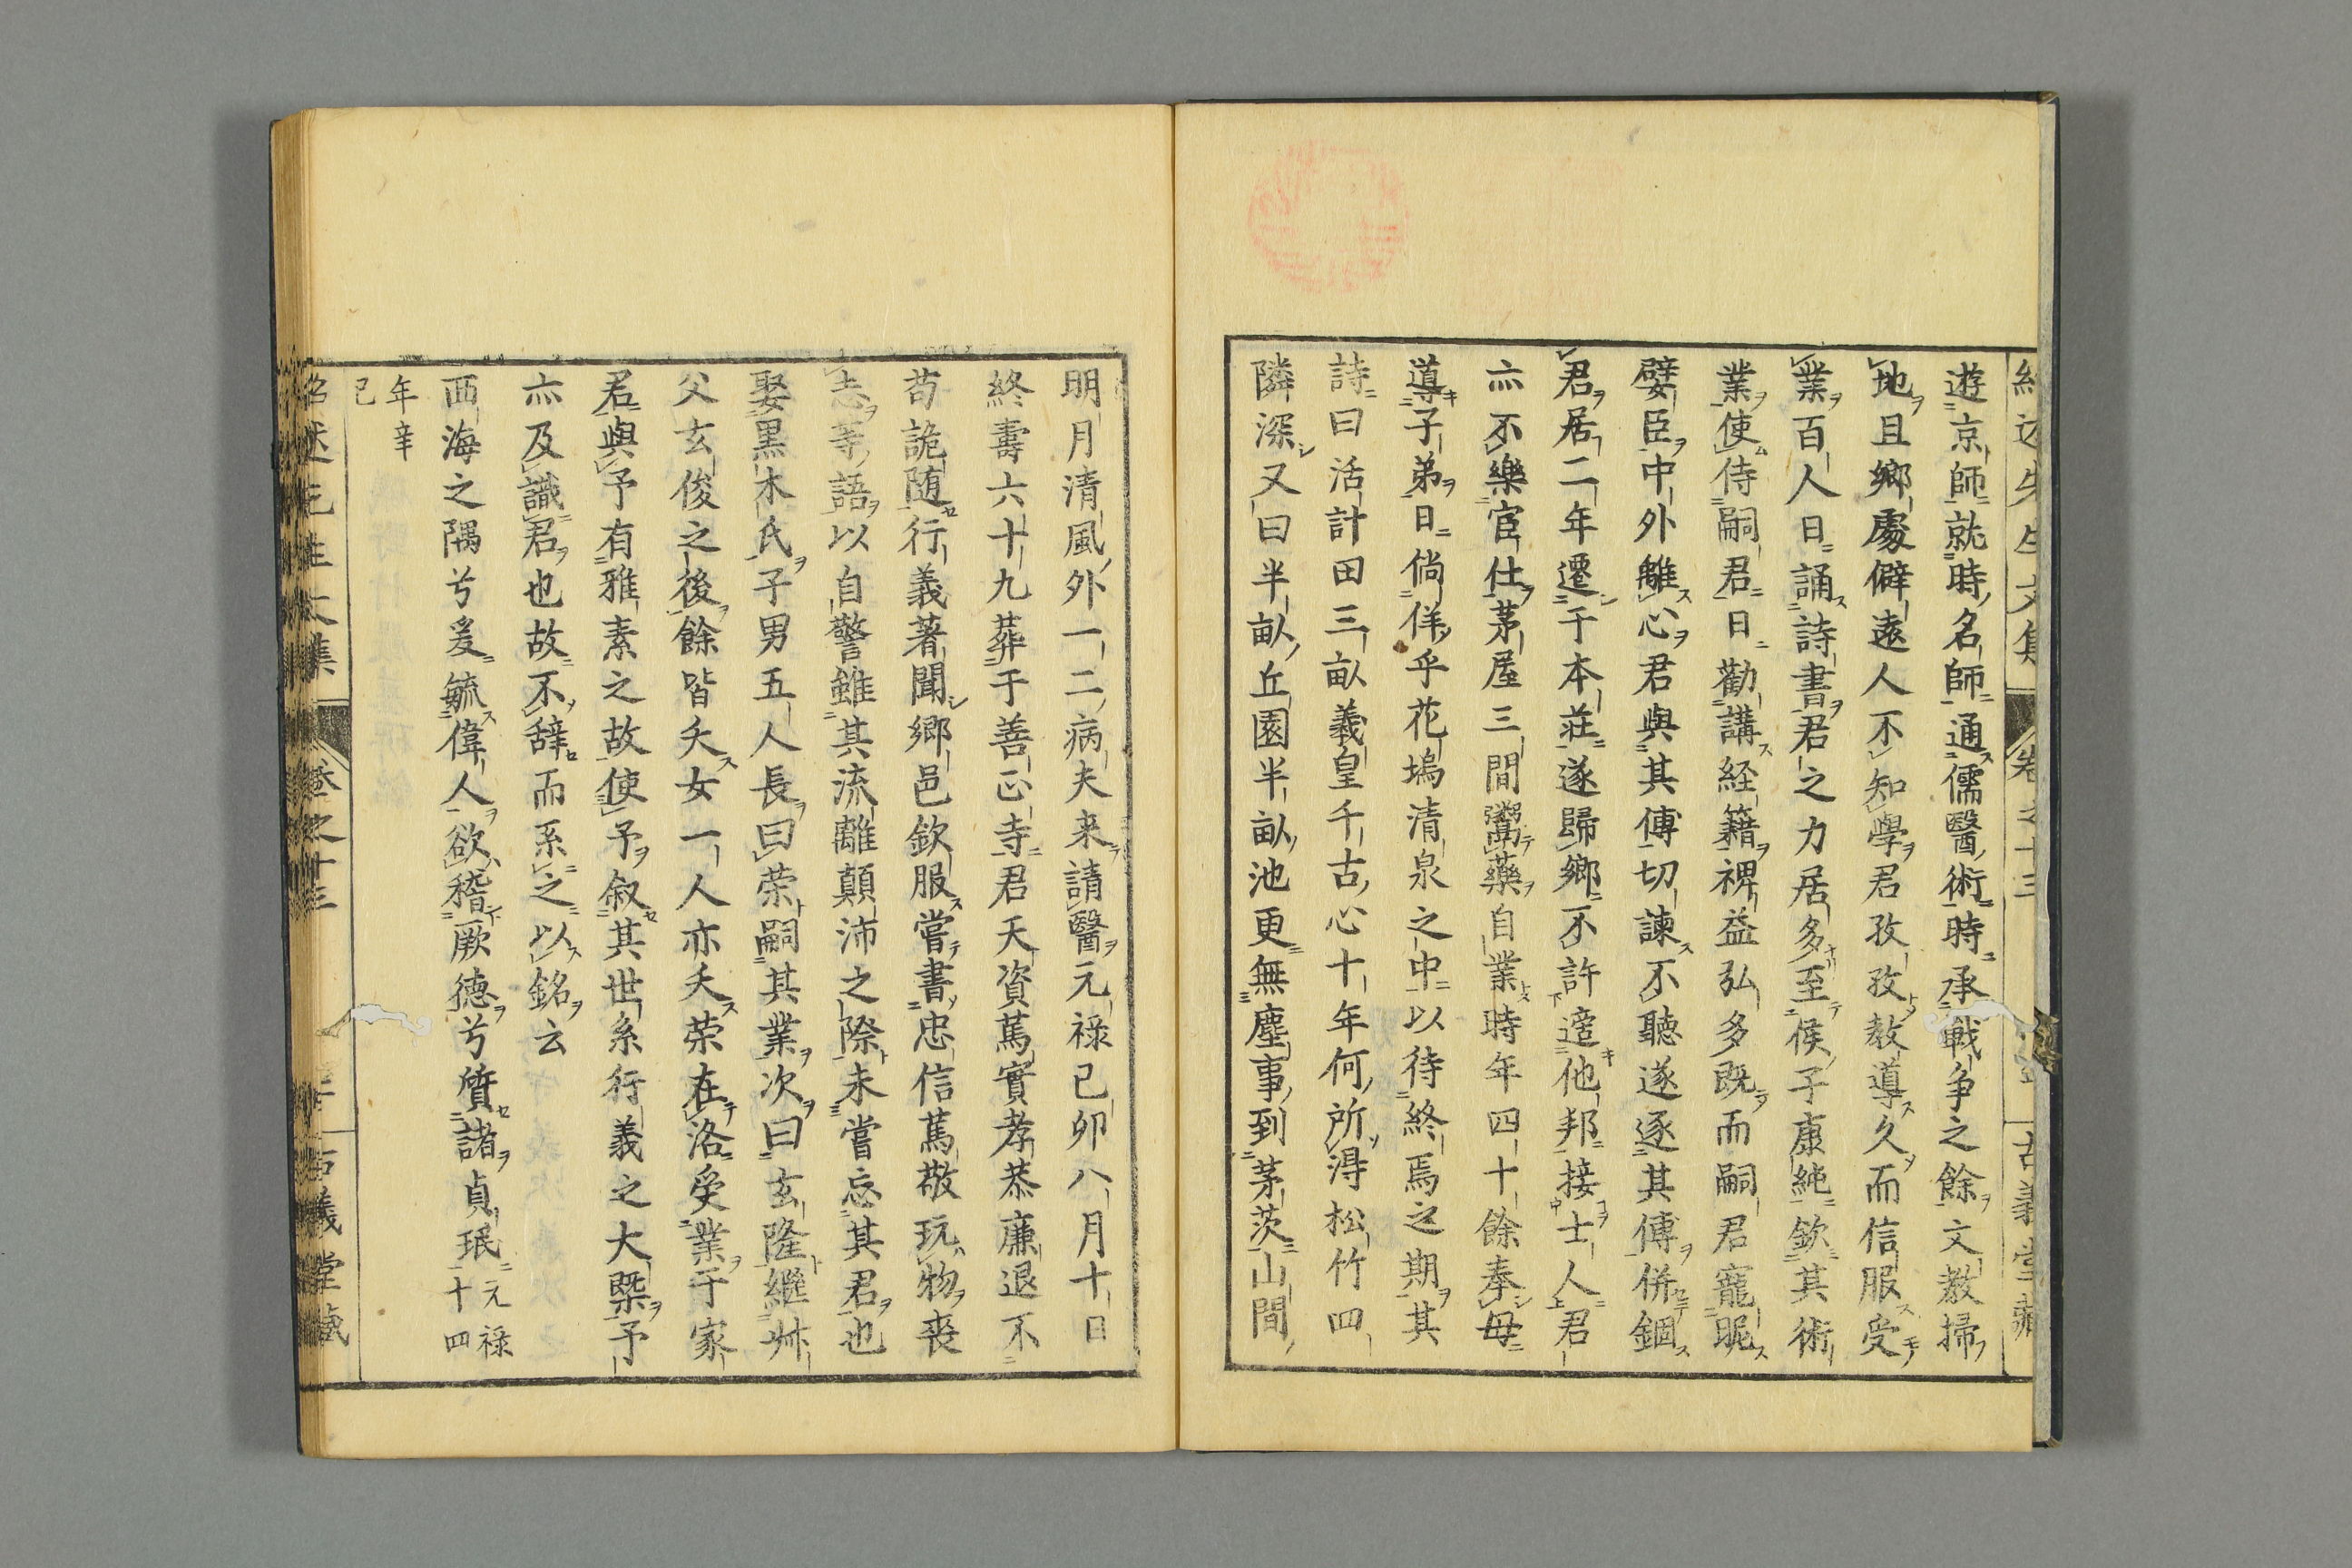 遊京師就時名師通儒醫術時承戰争之餘文教掃
地且鄉處僻遠人不知學君孜孜教導久而信服受
業百人日誦詩書君之力居多至侯子康純欽其術
業使侍嗣君日勸講経籍裨益弘多既而嗣君寵昵
嬖臣中外離心君與其傅切諫不聽遂逐其傅併錮
君居二年遷于本莊遂歸鄉不許適他邦接士人君
亦不樂宦仕茅屋三間鬻藥自業時年四十餘奉母
導子弟日倘佯乎花塢清泉之中以待終焉之期其
詩曰活計田三畝羲皇千古心十年何所得松竹四
隣深又曰半畝丘園半畝池更無塵事到茅茨山間
明月清風外一二病夫来請醫元禄己卯八月十日
終壽六十九葬于善正寺君天資篤實孝恭廉退不
苟詭随行義著聞鄉邑欽服嘗書忠信篤敬玩物丧
志等語以自警雖其流離顛沛之際未嘗忘其君也
娶黒木氏子男五人長曰荣嗣其業次曰玄隆繼舛
父玄俊之後餘皆夭女一人亦夭荣在洛受業于家
君與予有雅素之故使予叙其世系行義之大槩予
亦及識君也故不辞而系之以銘云
西海之隅兮爰毓偉人欲稽厥德兮質諸貞珉 元禄
十四
年辛
巳
紹述先生文集 卷之十三 古義堂藏